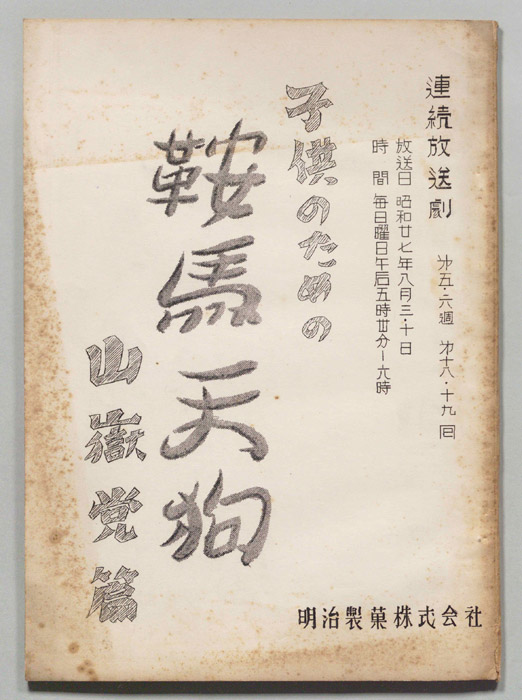 連続放送劇 㐧五・六週 㐧十八・十九回
放送日 昭和廿七年八月三・十日
時間 毎日曜日午后五時丗分―六時
子供のための
鞍馬天狗
山嶽党篇
明治製菓株式会社